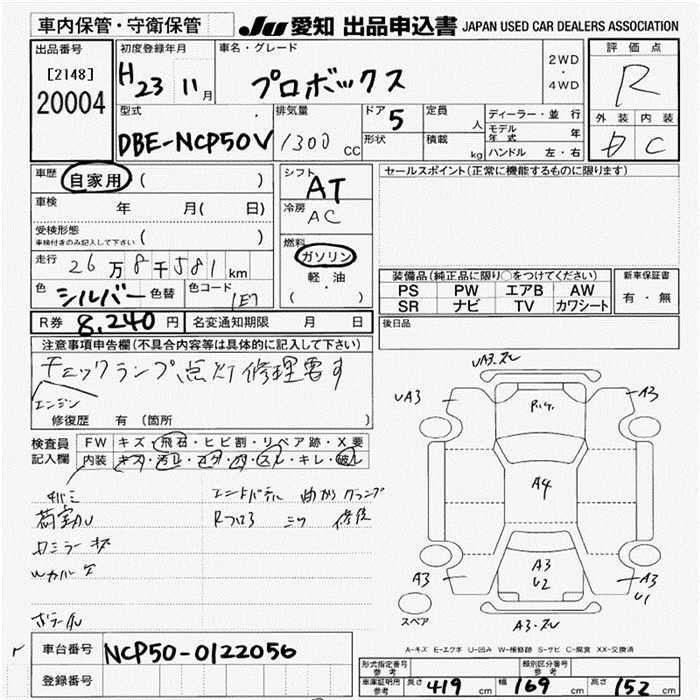 車内保管・守衛保管
JU 愛知 出品申込書 JAPAN USED CAR DEALERS ASSOCIATION
出品番号
[2148]
20004
初度登録年月
H23 11月
車名・グレード
プロボックス
2WD
・
4WD
評価点
R
外装 内装
C
型式
DBE-NCP50V
排気量
1300 CC
ドア 5
形状
定員 人
積載 kg
ディーラー・並行
モデル年式 年
ハンドル 左・右
車歴 自家用 ( )
車検 年 月( 日)
受検形態
車検付きのみ記入して下さい ( )
走行 26万8千581km
色 シルバー 色替 色コード 1E7
R券 8,240円 名変通知期限 月 日
シフト
AT
冷房
AC
燃料
ガソリン
軽・油
( ・ )
セールスポイント(正常に機能するものに限ります)
装備品(純正品に限り○をつけてください)
PS PW エアB AW
SR ナビ TV カワシート
新車保証書
有・無
後日品
注意事項申告欄(不具合内容等は具体的に記入して下さい)
チェックランプ点灯修理要す
エンジン
修復歴 有 (箇所 )
検査員記入欄
FW キズ・飛石・ヒビ割・リペア跡・X要
内装 キズ・汚れ・コゲ・穴・スレ・キレ・破レ
荷室ル
曲がり クランプ
Rフロア ミツ 修後
UA3・スレ
UA3
A3
R1ケ.
A4
A3
U2
A3
A3
U1
A3・スレ
スペア
A-キズ E-エクボ U-凹み W-補修跡 S-サビ C-腐食 XX-交換済
車台番号 NCP50-0122056
登録番号
形式指定番号
参考
類別区分番号
参考
車庫証明用
参考
長さ 419cm 幅 169cm 高さ 152cm